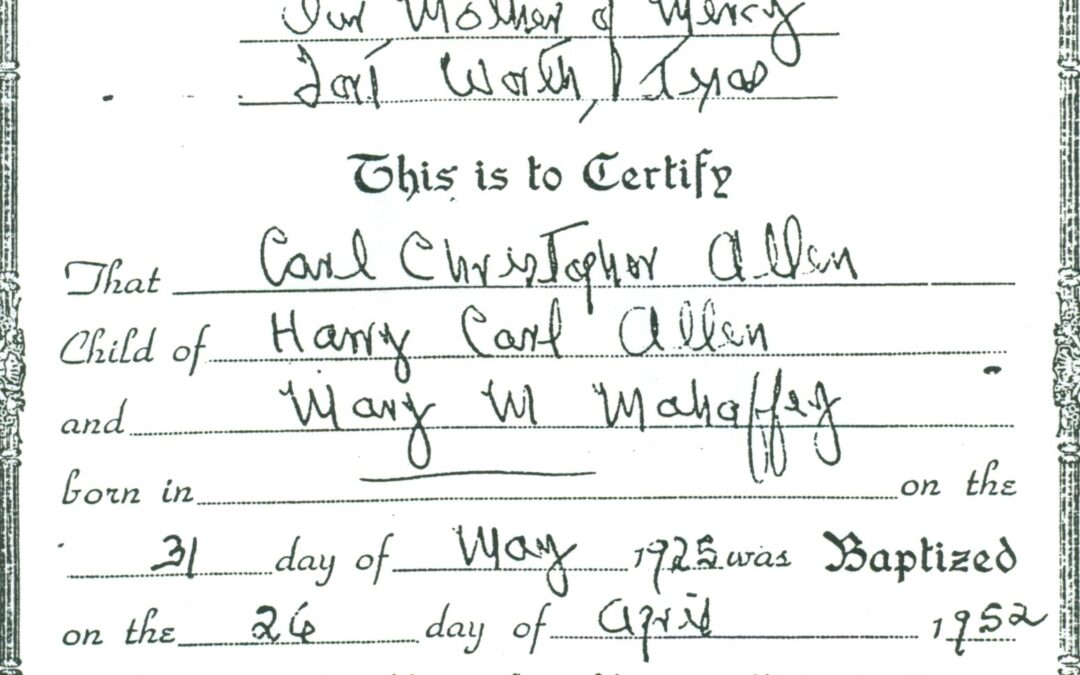 Our Mother of Mercy
Fort Worth, Texas
This is to Certify
That Carl Christopher Allen
Child of Harry Carl Allen
and Mary M Mahaffey
born in on the
31 day of May 1925 was Baptized
on the 26 day of April 1952